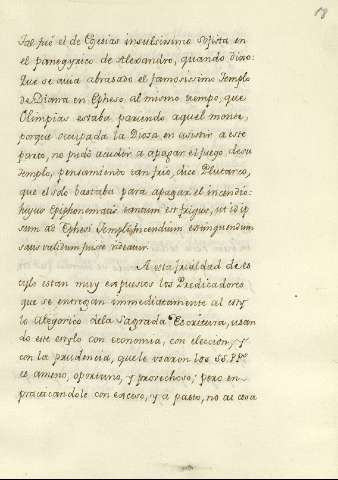 18
Tal fué el de Egesias insulsisimo Sofista en
el panegyrico de Alexandro, quando dixo:
Que se avia abrasado el famosissimo Templo
de Diana en Epheso, al mismo tiempo, que
Olimpias estaba pariendo aquel monst,
porque ocupada la Diosa en asistir a este
parto, no pudo acudir a apagar el fuego de su
templo, pensamiento tan frio, dice Plutarco,
que el solo bastaba para apagar el incendio:
huyus Epiphonematis tantum est frigus, ut id ip
sum ad Ephesi Templi incendium extinguendum
satis validum fuisse videatur.
A esta frialdad de es
tylo estan muy expuestos los Predicadores
que se entregan immediatamente al esty
lo Alegorico dela Sagrada Escritura, usan
do este estylo con economia, con eleccion, y
con la prudencia, que le usaron los SS. PP.
es ameno, oportuno, y provechoso; pero en
practicandole con exceso, y a pasto, no ai cosa